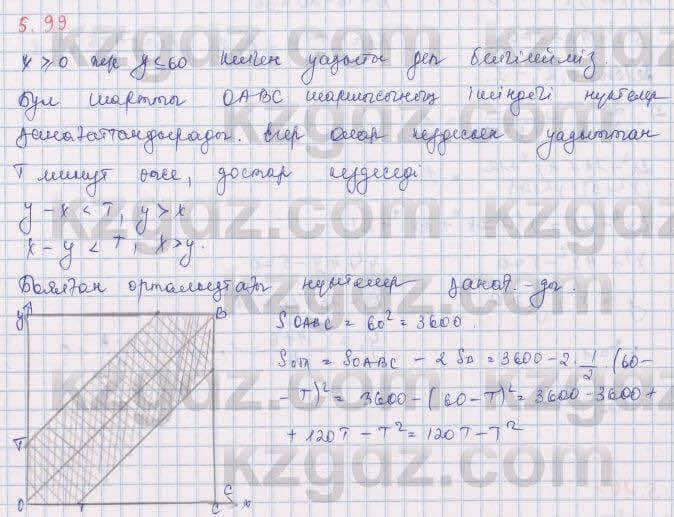 5.99
x > 0 және y ≤ 60 келген уақыты деп белгілейміз.
Бұл шартты OABC шаршысының ішіндегі нүктелер
қанағаттандырады. Егер олар уақыттан
T минут достар кездеседі
y - x < T, y > x
x - y < T, x > y.
Боялған орталықтағы нүктелер қанағ. -ды.
y B
S OABC = 60² = 3600.
Sфиг = SOABC - 2 SΔ = 3600 - 2 · 1/2 · (60 -
- T)² = 3600 - (60 - T)² = 3600 - 3600 +
+ 120T - T² = 120T - T²
T
O T C x
kzgdz.com